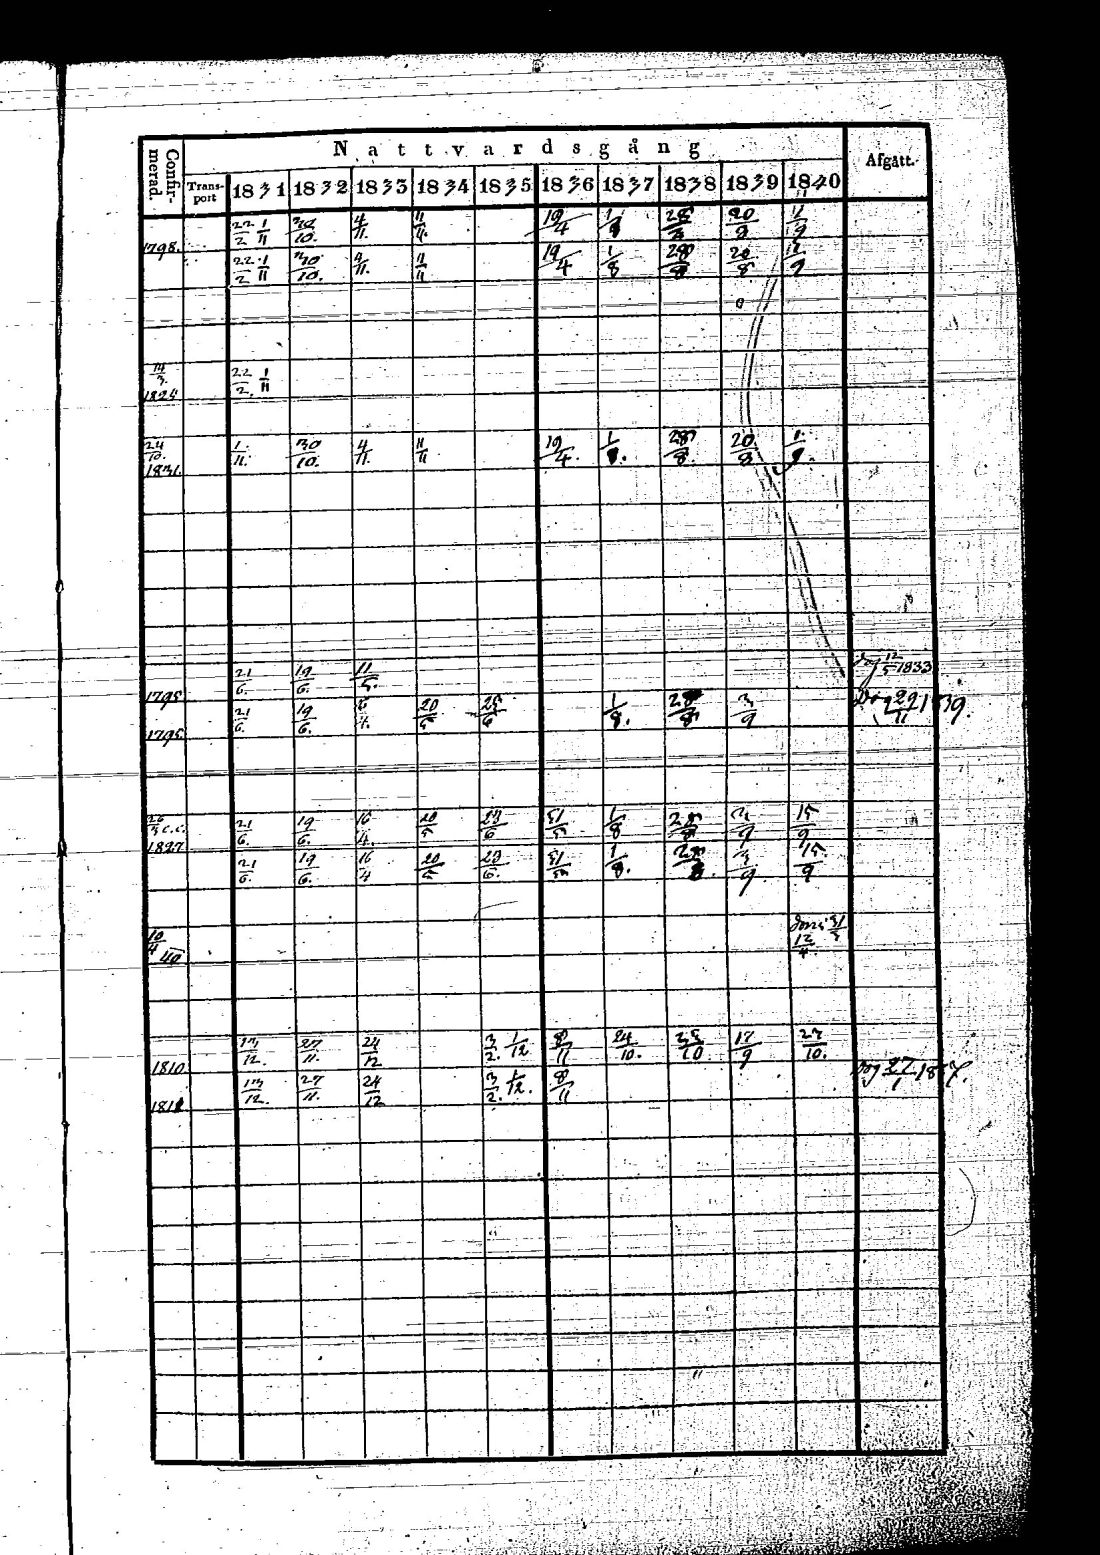 Nattvardsgång
Confirmerad. Transport 1831 1832 1833 1834 1835 1836 1837 1838 1839 1840 Afgått.
22/2 1/11 30/10. 4/11. 11/11. 19/4 1/8 28/8 20/8 1/9
1798.
22/2 1/11 30/10. 4/11. 11/11 19/4 1/8 28/8 20/8 1/9
14/3. 1824 22/2. 1/11
24/10. 1831. 1/11. 30/10. 4/11. 11/11 19/4. 1/8. 28/8. 20/8 1/9.
21/6. 19/6. 11/5. 12/5 1833
1795
21/6. 19/6. 20/5 25/6 1/8. 28/8 3/9 29/11 1839.
1795
26/3 c.c. 1827 21/6. 19/6. 16/4. 20/5 23/6 31/5 1/8 28/8 3/9 15/9
21/6. 19/6. 16/4 20/5 23/6. 31/5 1/8. 28/8 3/9 15/9
10/4 40 31/3
12/4.
13/12. 27/11. 24/12 3/2. 1/12 8/11 24/10. 25/10 17/9 27/10.
1810
13/12. 27/11. 24/12 3/2. 1/12. 8/11 27/1 1837.
1811